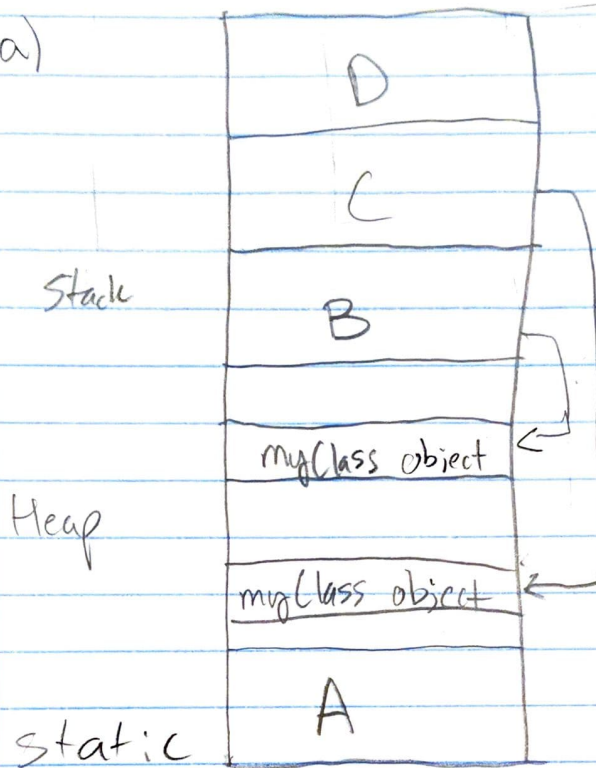 a)
D
C
Stack
B
myClass object
Heap
myClass object
A
static